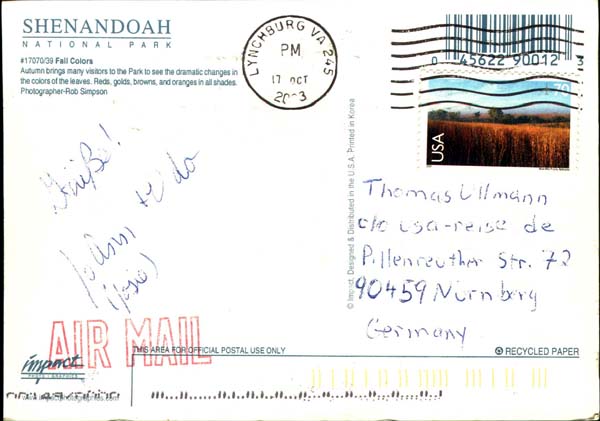 SHENANDOAH
NATIONAL PARK
#17070/39 Fall Colors
Autumn brings many visitors to the Park to see the dramatic changes in
the colors of the leaves. Reds, golds, browns, and oranges in all shades.
Photographer-Rob Simpson
LYNCHBURG VA 245
PM
17 OCT
2003
0 45622 90012 3
70
USA
Grüße!
© Impact, Designed & Distributed in the U.S.A. Printed in Korea
Thomas Ullmann
c/o usa-reise de
Pillenreuther Str. 72
90459 Nürnberg
Germany
AIR MAIL
THIS AREA FOR OFFICIAL POSTAL USE ONLY
RECYCLED PAPER
impact
PHOTO GRAPHICS
www.impactphotographics.com